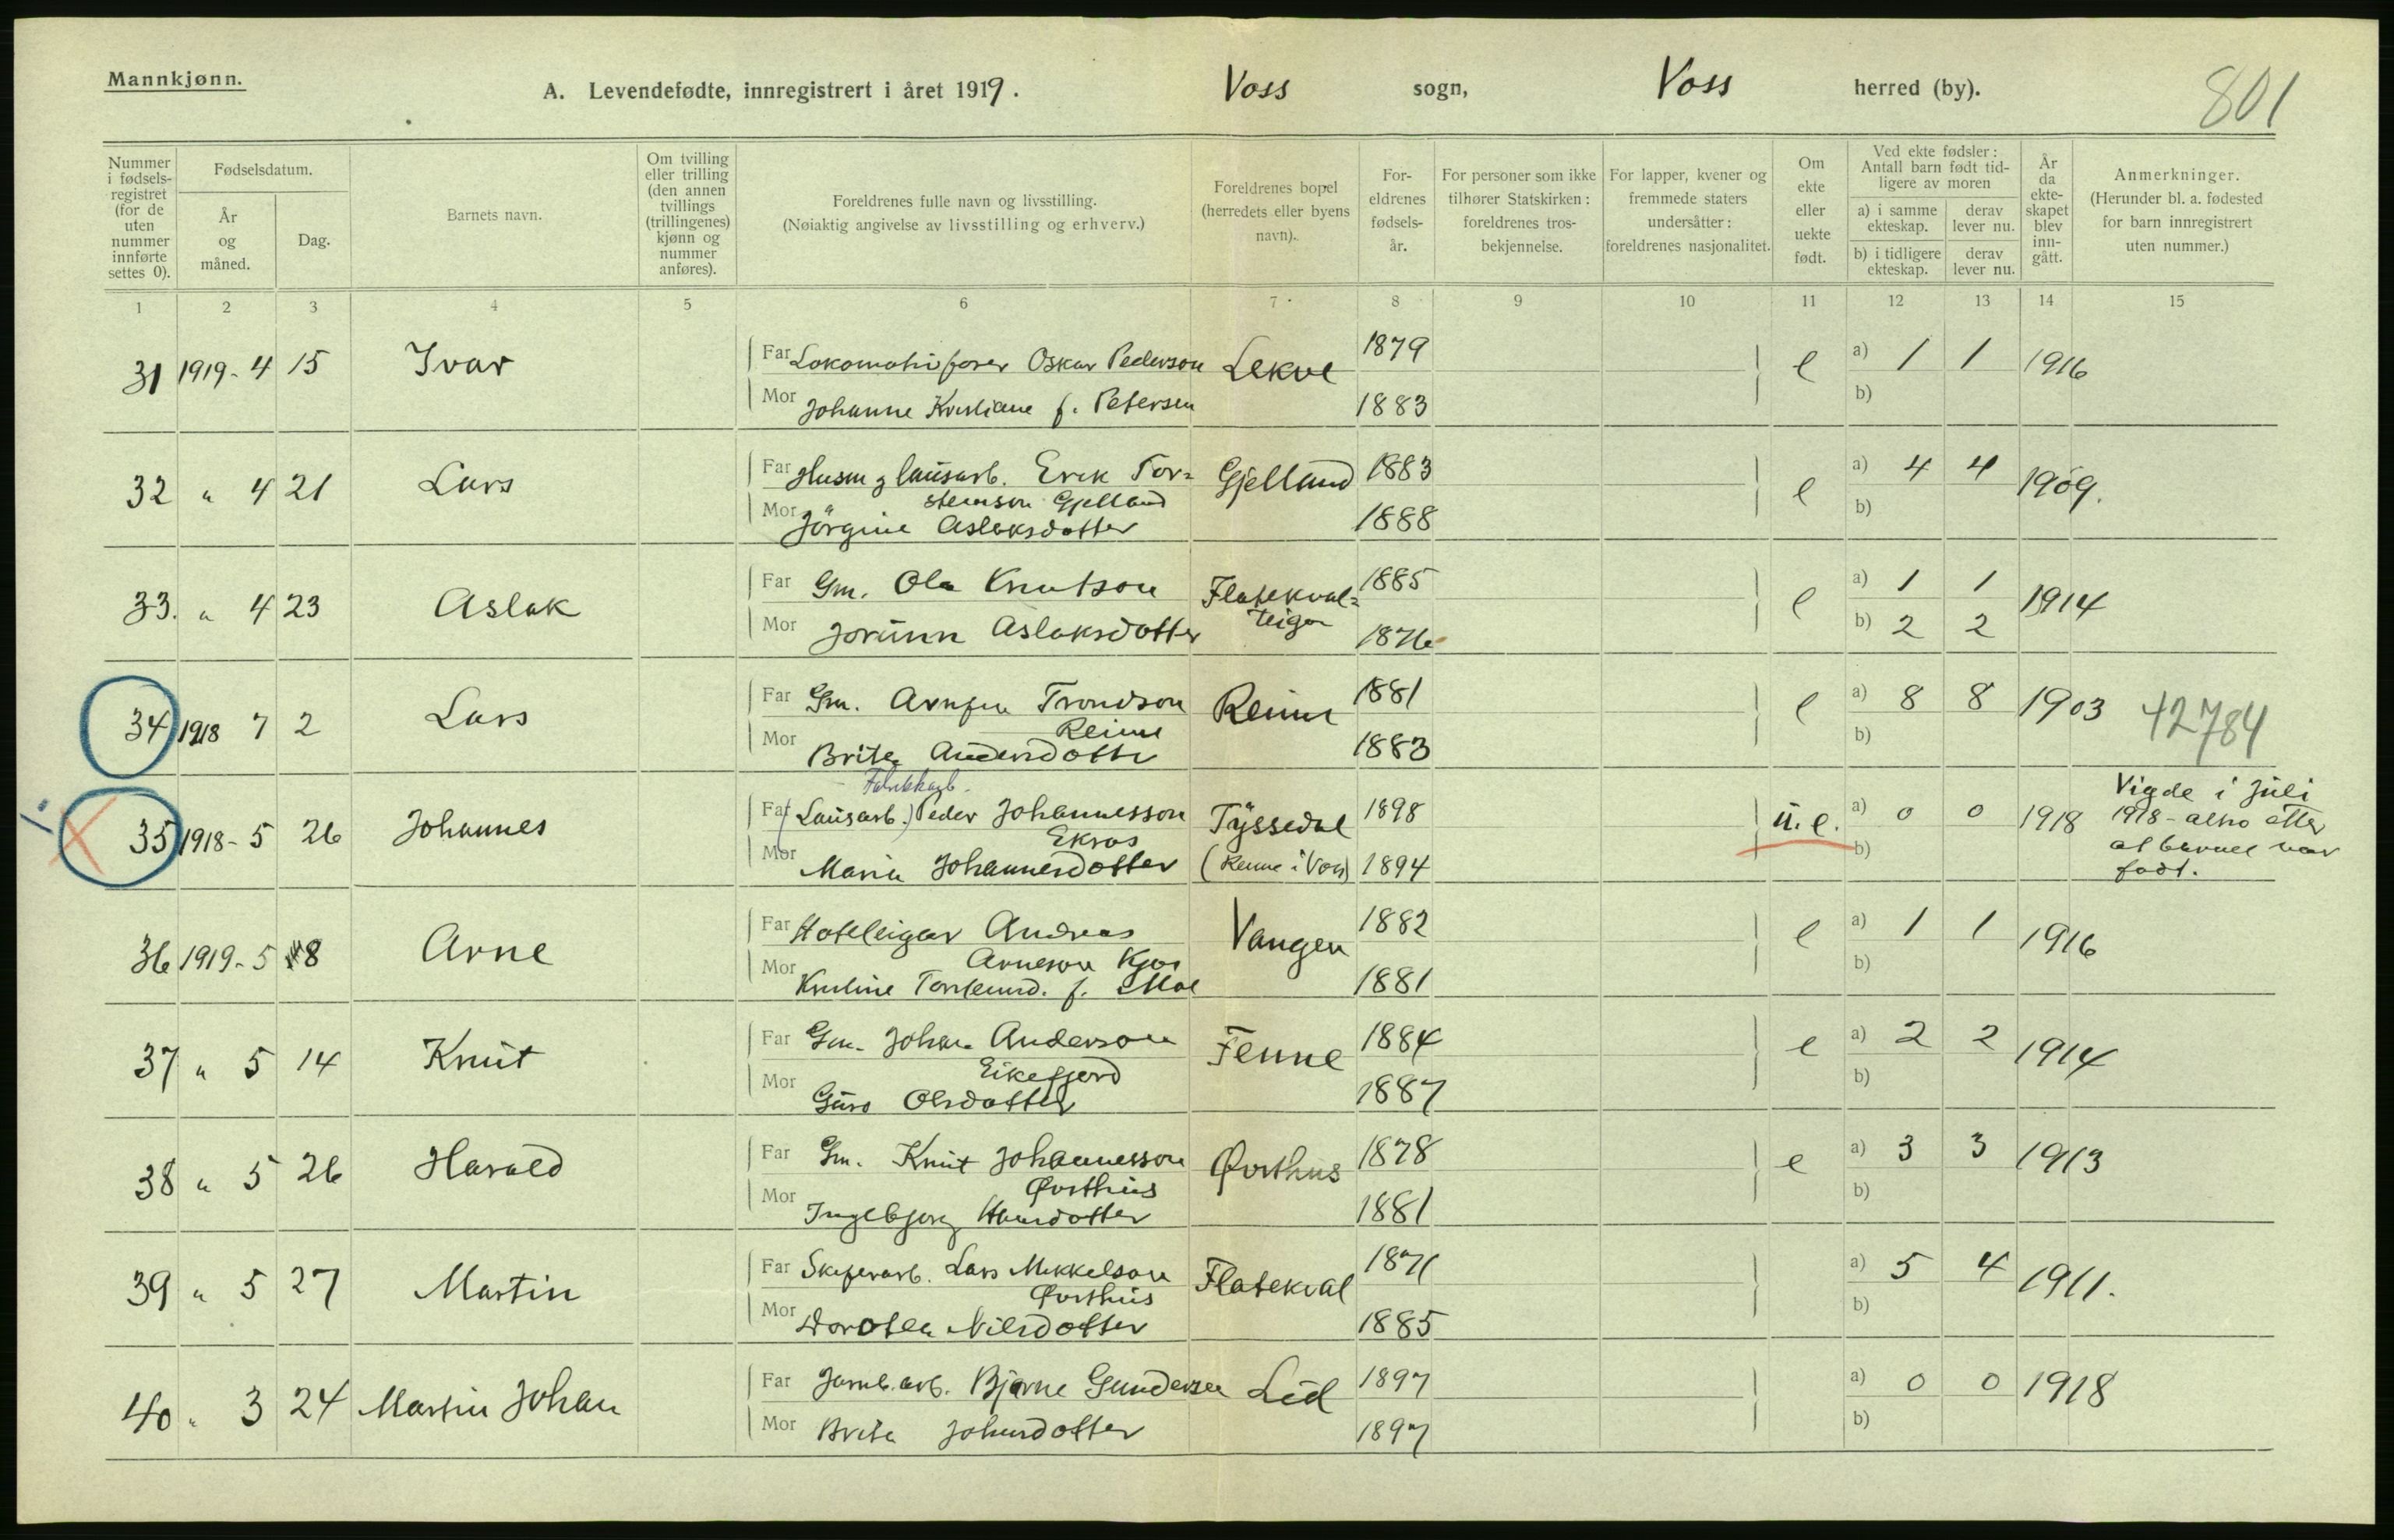 Mannkjønn.
A. Levendefødte, innregistrert i året 1919.
Voss sogn,
Voss herred (by).
801
Nummer i fødselsregistret (for de uten nummer innførte settes 0).
Fødselsdatum.
År og måned.
Dag.
Barnets navn.
Om tvilling eller trilling (den annen tvillings (trillingenes) kjønn og nummer anføres).
Foreldrenes fulle navn og livsstilling.
(Nøiaktig angivelse av livsstilling og erhverv.)
Foreldrenes bopel (herredets eller byens navn).
Foreldrenes fødselsår.
For personer som ikke tilhører Statskirken: foreldrenes trosbekjennelse.
For lapper, kvener og fremmede staters undersåtter: foreldrenes nasjonalitet.
Om ekte eller uekte født.
Ved ekte fødsler: Antall barn født tidligere av moren
a) i samme ekteskap. derav lever nu.
b) i tidligere ekteskap. derav lever nu.
År da ekteskapet blev inngått.
Anmerkninger.
(Herunder bl. a. fødested for barn innregistrert uten nummer.)
1 2 3 4 5 6 7 8 9 10 11 12 13 14 15
31 1919-4 15 Ivar Far Lokomotivfører Oskar Pederson Lekve 1879 e a) 1 1 1916
Mor Johanne Kristiane f. Petersen 1883 b)
32 " 4 21 Lars Far Husm g lausarb. Erik Tor= Gjelland 1883 e a) 4 4 1909.
steinson Gjelland
Mor Jörgine Aslaksdotter 1888 b)
33. " 4 23 Aslak Far Gm. Ola Knutson Flatekval= 1885 e a) 1 1 1914
teigen
Mor Jorunn Aslaksdotter 1876 b) 2 2
34 1918 7 2 Lars Far Gm. Arnfin Trondson Reime 1881 e a) 8 8 1903 42784
Reime
Mor Brita Andersdotte 1883 b)
Fabrikkarb.
35 1918-5 26 Johannes Far (Lausarb.) Peder Johannesson Tyssedal 1898 u.e. a) 0 0 1918 Vigde i juli
Ekras 1918 - altso etter
Mor Maria Johannesdotter (Reime i Voss) 1894 b) at barnet var
født.
36 1919-5 8 Arne Far Hotelleigar Andreas Vangen 1882 e a) 1 1 1916
Arneson Kjos
Mor Kristine Torsteinsd. f. Moe 1881 b)
37 " 5 14 Knut Far Gm. Johan Anderson Fenne 1884 e a) 2 2 1914
Eikefjord
Mor Guro Olsdotter 1887 b)
38 " 5 26 Harald Far Gm. Knut Johannesson Øvsthus 1878 e a) 3 3 1913
Øvsthus
Mor Ingebjorg Hansdotter 1881 b)
39 " 5 27 Martin Far Skiferarb. Lars Mikkelson Flatekval 1871 a) 5 4 1911.
Øvsthus
Mor Dorotea Nilsdotter 1885 b)
40 " 3 24 Martin Johan Far Jarnb.arb. Bjarne Gundersen Lid 1897 a) 0 0 1918
Mor Brita Johansdotter 1897 b)